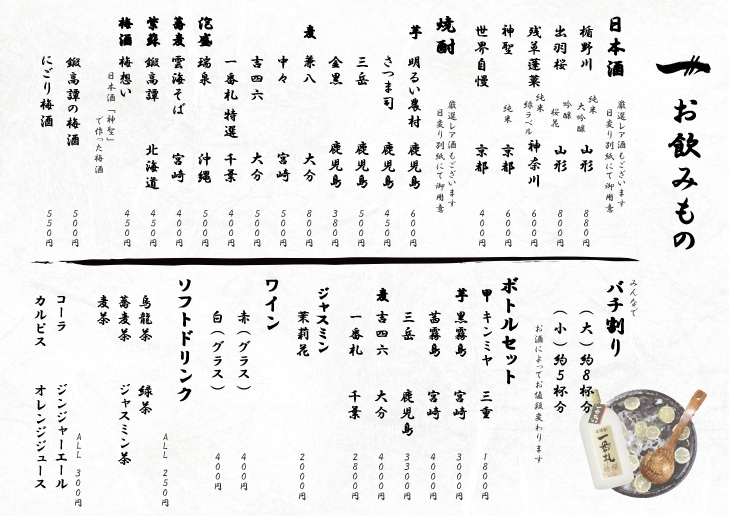 お飲みもの
日本酒
厳選レア酒もございます
日変り別紙にて御用意
楯野川 純米大吟醸 山形 880円
出羽桜 吟醸 桜花 山形 800円
残草蓬莱 純米 緑ラベル 神奈川 600円
神聖 純米 京都 600円
世界自慢 京都 400円
焼酎
厳選レア酒もございます
日変り別紙にて御用意
芋 明るい農村 鹿児島 600円
さつま司 鹿児島 450円
三岳 鹿児島 500円
金黒 鹿児島 380円
麦 兼八 大分 800円
中々 宮崎 500円
吉四六 大分 500円
一番札 特選 千葉 400円
泡盛 瑞泉 沖縄 500円
蕎麦 雲海そば 宮崎 400円
紫蘇 鍛高譚 北海道 450円
梅酒 梅想い 450円
日本酒「神聖」
で作った梅酒
鍛高譚の梅酒 500円
にごり梅酒 550円
みんなで
バチ割り
(大)約8杯分
(小)約5杯分
お酒によってお値段変わります
ボトルセット
甲 キンミヤ 三重 1800円
芋 黒霧島 宮崎 3000円
茜霧島 宮崎 4000円
三岳 鹿児島 3300円
麦 吉四六 大分 4000円
一番札 千葉 2800円
ジャスミン
茉莉花 2000円
ワイン
赤(グラス) 400円
白(グラス) 400円
ソフトドリンク
ALL 250円
烏龍茶 緑茶
蕎麦茶 ジャスミン茶
麦茶
ALL 300円
コーラ ジンジャーエール
カルピス オレンジジュース
一番札